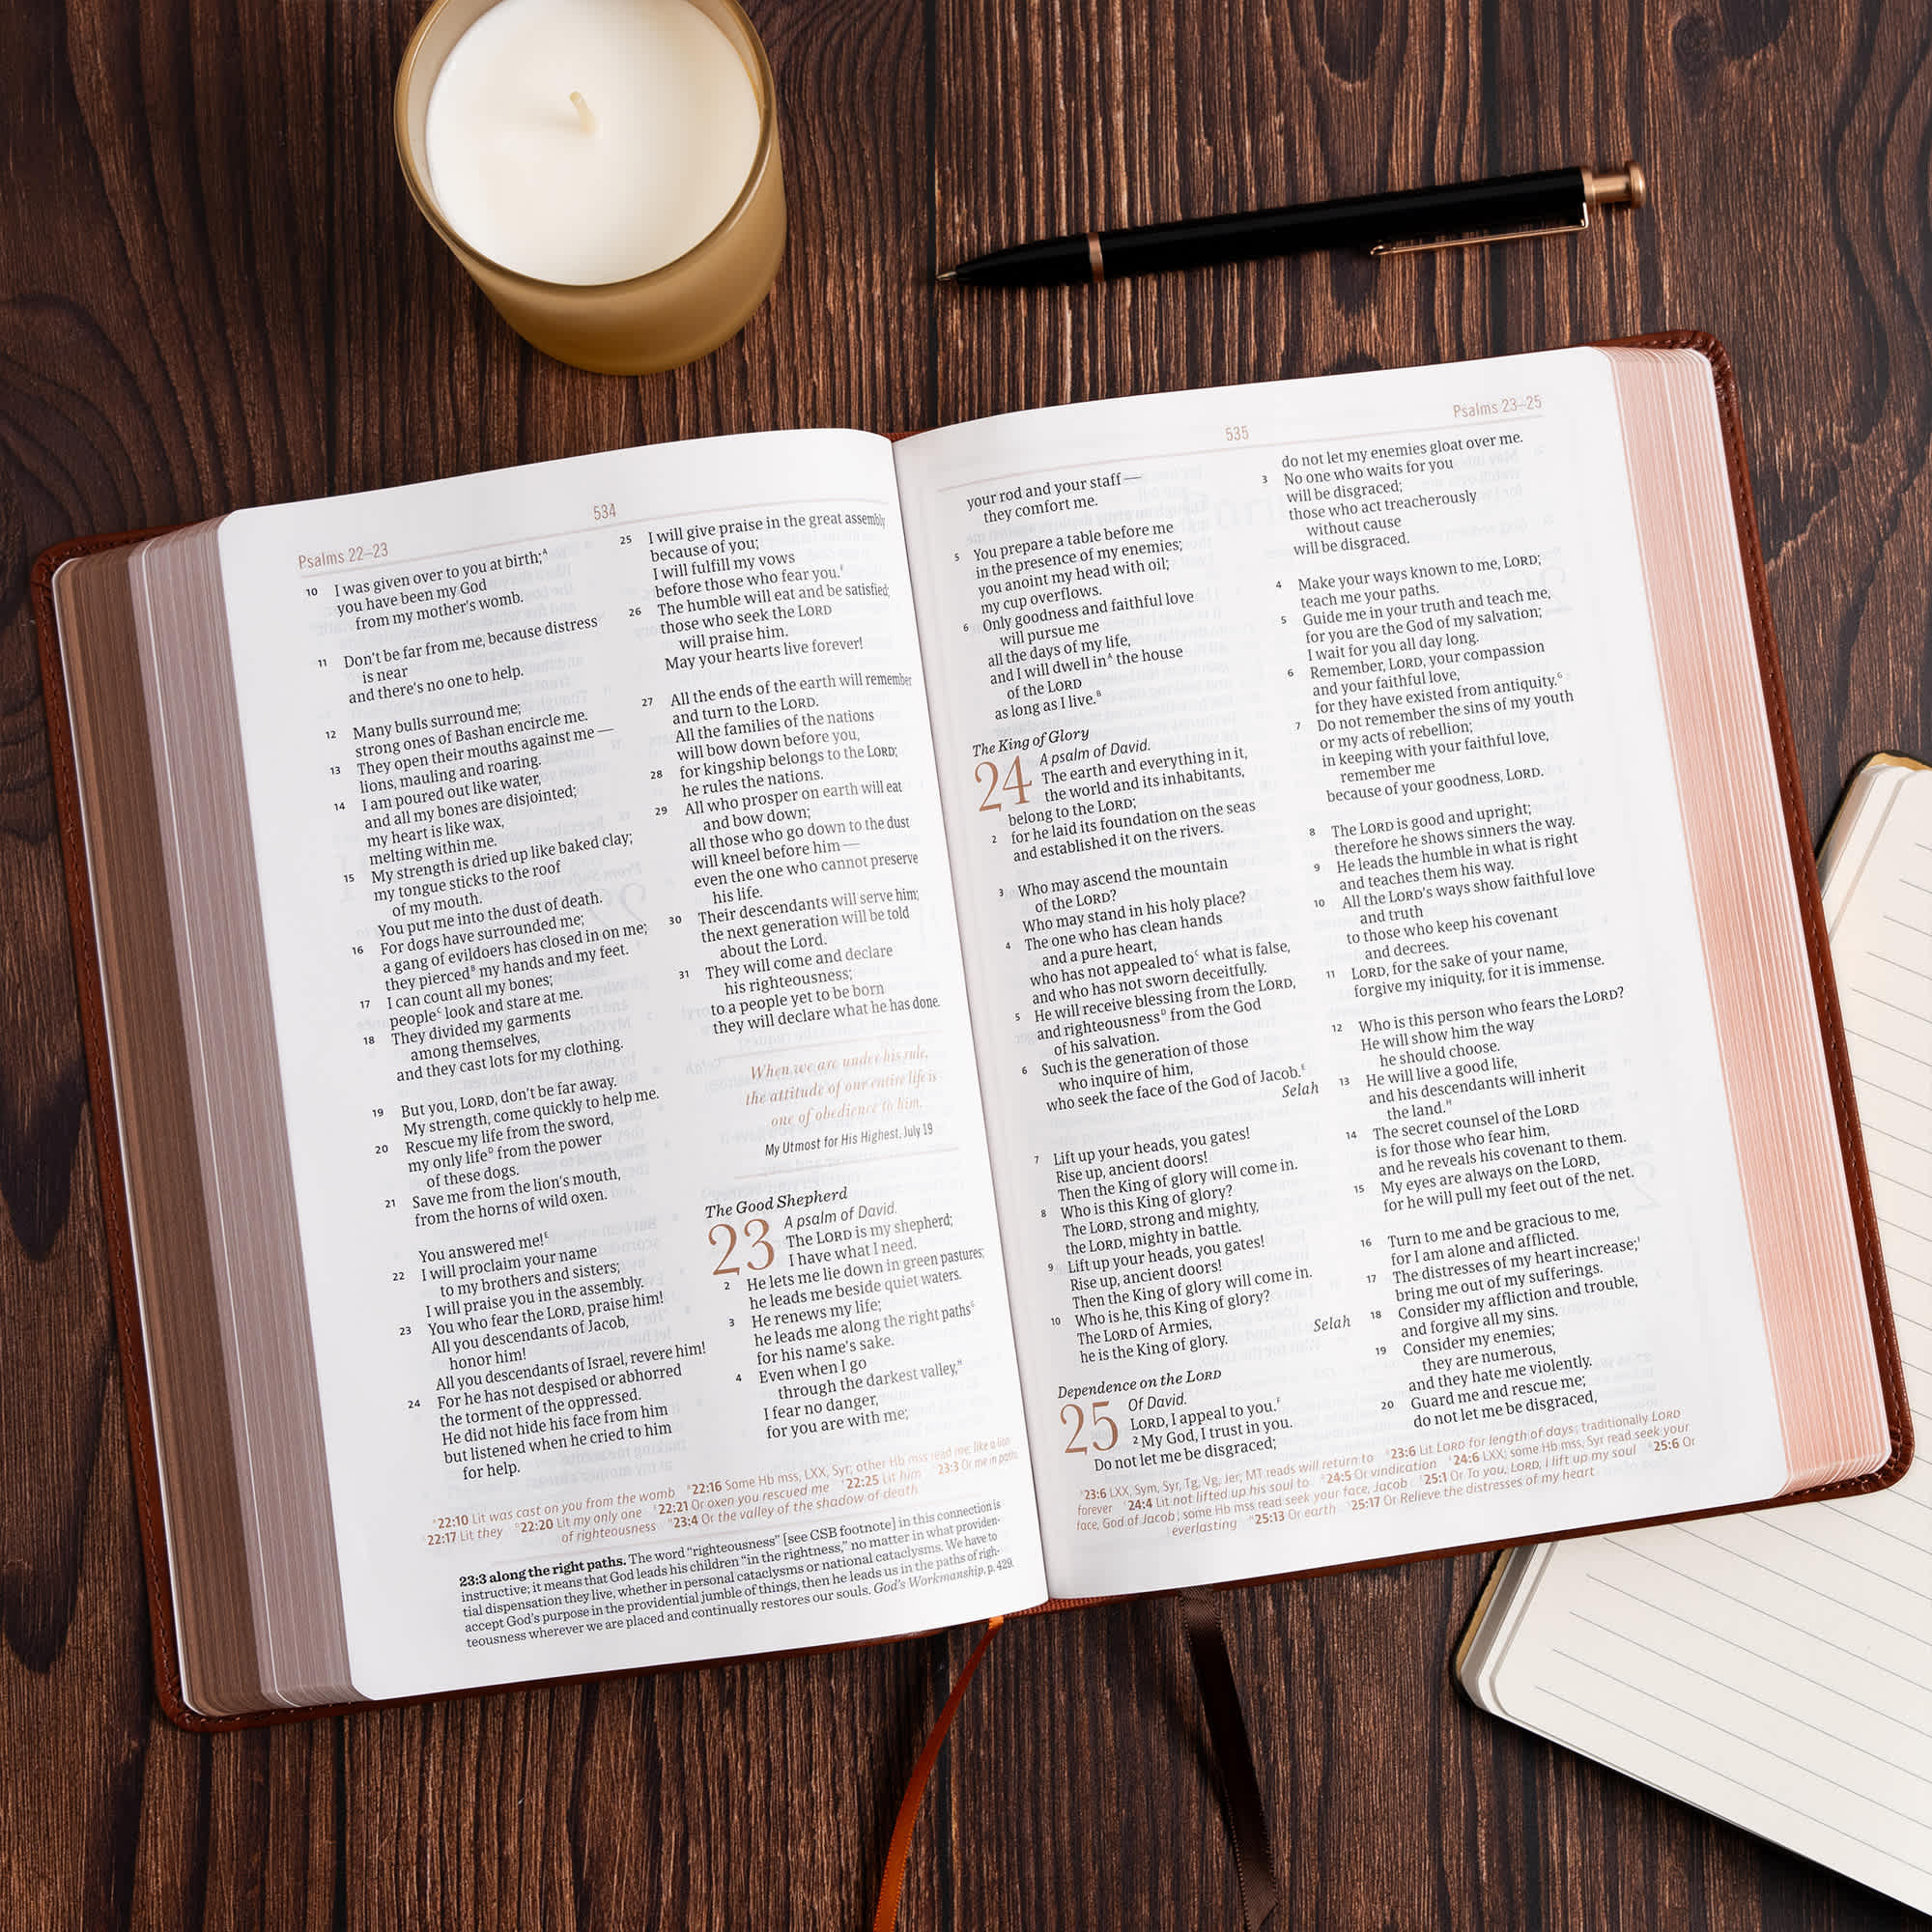 Psalms 22–23
534
10 I was given over to you at birth;ᴬ
you have been my God
from my mother's womb.
11 Don't be far from me, because distress
is near
and there's no one to help.
12 Many bulls surround me;
strong ones of Bashan encircle me.
13 They open their mouths against me —
lions, mauling and roaring.
14 I am poured out like water,
and all my bones are disjointed;
my heart is like wax,
melting within me.
15 My strength is dried up like baked clay;
my tongue sticks to the roof
of my mouth.
You put me into the dust of death.
16 For dogs have surrounded me;
a gang of evildoers has closed in on me;
they piercedᴮ my hands and my feet.
17 I can count all my bones;
peopleᶜ look and stare at me.
18 They divided my garments
among themselves,
and they cast lots for my clothing.
19 But you, LORD, don't be far away.
My strength, come quickly to help me.
20 Rescue my life from the sword,
my only lifeᴰ from the power
of these dogs.
21 Save me from the lion's mouth,
from the horns of wild oxen.
You answered me!ᴱ
22 I will proclaim your name
to my brothers and sisters;
I will praise you in the assembly.
23 You who fear the LORD, praise him!
All you descendants of Jacob,
honor him!
All you descendants of Israel, revere him!
24 For he has not despised or abhorred
the torment of the oppressed.
He did not hide his face from him
but listened when he cried to him
for help.
25 I will give praise in the great assembly
because of you;
I will fulfill my vows
before those who fear you.ᶠ
26 The humble will eat and be satisfied;
those who seek the LORD
will praise him.
May your hearts live forever!
27 All the ends of the earth will remember
and turn to the LORD.
All the families of the nations
will bow down before you,
28 for kingship belongs to the LORD;
he rules the nations.
29 All who prosper on earth will eat
and bow down;
all those who go down to the dust
will kneel before him —
even the one who cannot preserve
his life.
30 Their descendants will serve him;
the next generation will be told
about the Lord.
31 They will come and declare
his righteousness;
to a people yet to be born
they will declare what he has done.
When we are under his rule,
the attitude of our entire life is
one of obedience to him.
My Utmost for His Highest, July 19
The Good Shepherd
23 A psalm of David.
The LORD is my shepherd;
I have what I need.
2 He lets me lie down in green pastures;
he leads me beside quiet waters.
3 He renews my life;
he leads me along the right pathsᴳ
for his name's sake.
4 Even when I go
through the darkest valley,ᴴ
I fear no danger,
for you are with me;
ᴬ22:10 Lit was cast on you from the womb ᴮ22:16 Some Hb mss, LXX, Syr; other Hb mss read me; like a lion
ᶜ22:17 Lit they ᴰ22:20 Lit my only one ᴱ22:21 Or oxen you rescued me ᶠ22:25 Lit him ᴳ23:3 Or me in paths
of righteousness ᴴ23:4 Or the valley of the shadow of death
23:3 along the right paths. The word "righteousness" [see CSB footnote] in this connection is
instructive; it means that God leads his children "in the rightness," no matter in what providen-
tial dispensation they live, whether in personal cataclysms or national cataclysms. We have to
accept God's purpose in the providential jumble of things, then he leads us in the paths of righ-
teousness wherever we are placed and continually restores our souls. God's Workmanship, p. 429.
535
Psalms 23–25
your rod and your staff —
they comfort me.
5 You prepare a table before me
in the presence of my enemies;
you anoint my head with oil;
my cup overflows.
6 Only goodness and faithful love
will pursue me
all the days of my life,
and I will dwell inᴬ the house
of the LORD
as long as I live.ᴮ
The King of Glory
24 A psalm of David.
The earth and everything in it,
the world and its inhabitants,
belong to the LORD;
2 for he laid its foundation on the seas
and established it on the rivers.
3 Who may ascend the mountain
of the LORD?
Who may stand in his holy place?
4 The one who has clean hands
and a pure heart,
who has not appealed toᶜ what is false,
and who has not sworn deceitfully.
5 He will receive blessing from the LORD,
and righteousnessᴰ from the God
of his salvation.
6 Such is the generation of those
who inquire of him,
who seek the face of the God of Jacob.ᴱ
Selah
7 Lift up your heads, you gates!
Rise up, ancient doors!
Then the King of glory will come in.
8 Who is this King of glory?
The LORD, strong and mighty,
the LORD, mighty in battle.
9 Lift up your heads, you gates!
Rise up, ancient doors!
Then the King of glory will come in.
10 Who is he, this King of glory?
The LORD of Armies,
he is the King of glory.
Selah
Dependence on the LORD
25 Of David.
LORD, I appeal to you.ᶠ
2 My God, I trust in you.
Do not let me be disgraced;
do not let my enemies gloat over me.
3 No one who waits for you
will be disgraced;
those who act treacherously
without cause
will be disgraced.
4 Make your ways known to me, LORD;
teach me your paths.
5 Guide me in your truth and teach me,
for you are the God of my salvation;
I wait for you all day long.
6 Remember, LORD, your compassion
and your faithful love,
for they have existed from antiquity.ᴳ
7 Do not remember the sins of my youth
or my acts of rebellion;
in keeping with your faithful love,
remember me
because of your goodness, LORD.
8 The LORD is good and upright;
therefore he shows sinners the way.
9 He leads the humble in what is right
and teaches them his way.
10 All the LORD's ways show faithful love
and truth
to those who keep his covenant
and decrees.
11 LORD, for the sake of your name,
forgive my iniquity, for it is immense.
12 Who is this person who fears the LORD?
He will show him the way
he should choose.
13 He will live a good life,
and his descendants will inherit
the land.ᴴ
14 The secret counsel of the LORD
is for those who fear him,
and he reveals his covenant to them.
15 My eyes are always on the LORD,
for he will pull my feet out of the net.
16 Turn to me and be gracious to me,
for I am alone and afflicted.
17 The distresses of my heart increase;ᴵ
bring me out of my sufferings.
18 Consider my affliction and trouble,
and forgive all my sins.
19 Consider my enemies;
they are numerous,
and they hate me violently.
20 Guard me and rescue me;
do not let me be disgraced,
ᴬ23:6 LXX, Sym, Syr, Tg, Vg, Jer; MT reads will return to ᴮ23:6 Lit LORD for length of days; traditionally LORD
forever ᶜ24:4 Lit not lifted up his soul to ᴰ24:5 Or vindication ᴱ24:6 LXX; some Hb mss, Syr read seek your
face, God of Jacob; some Hb mss read seek your face, Jacob ᶠ25:1 Or To you, LORD, I lift up my soul ᴳ25:6 Or
everlasting ᴴ25:13 Or earth ᴵ25:17 Or Relieve the distresses of my heart